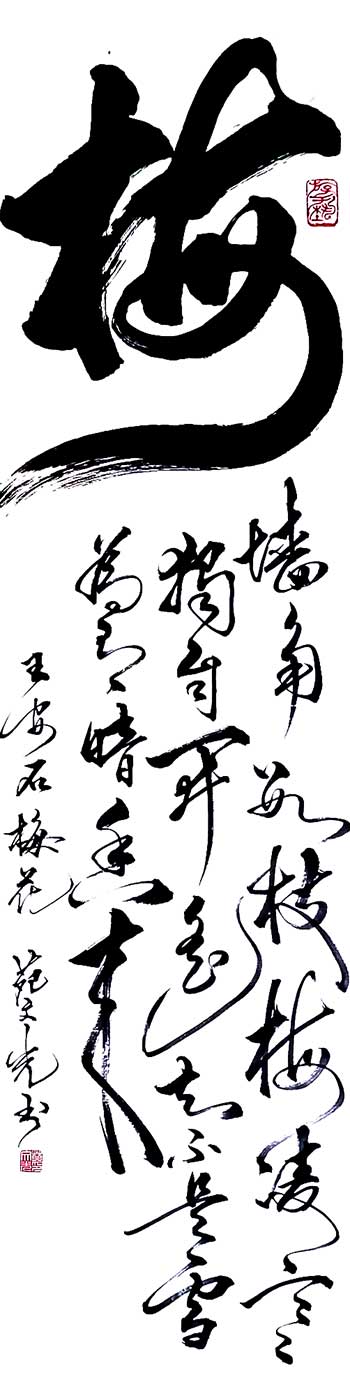 梅
墙角数枝梅凌寒
独自开遥知不是雪
为有暗香来
王安石梅花 范文光书